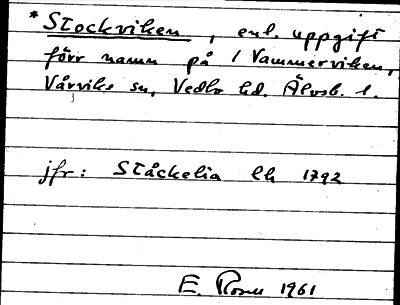 * Stockviken, enl. uppgift
förr namn på / Vammerviken,
Vårviks sn, Vedbo hd. Älvsb. l.
jfr: Ståckelia lh 1792
E. Rosell 1961